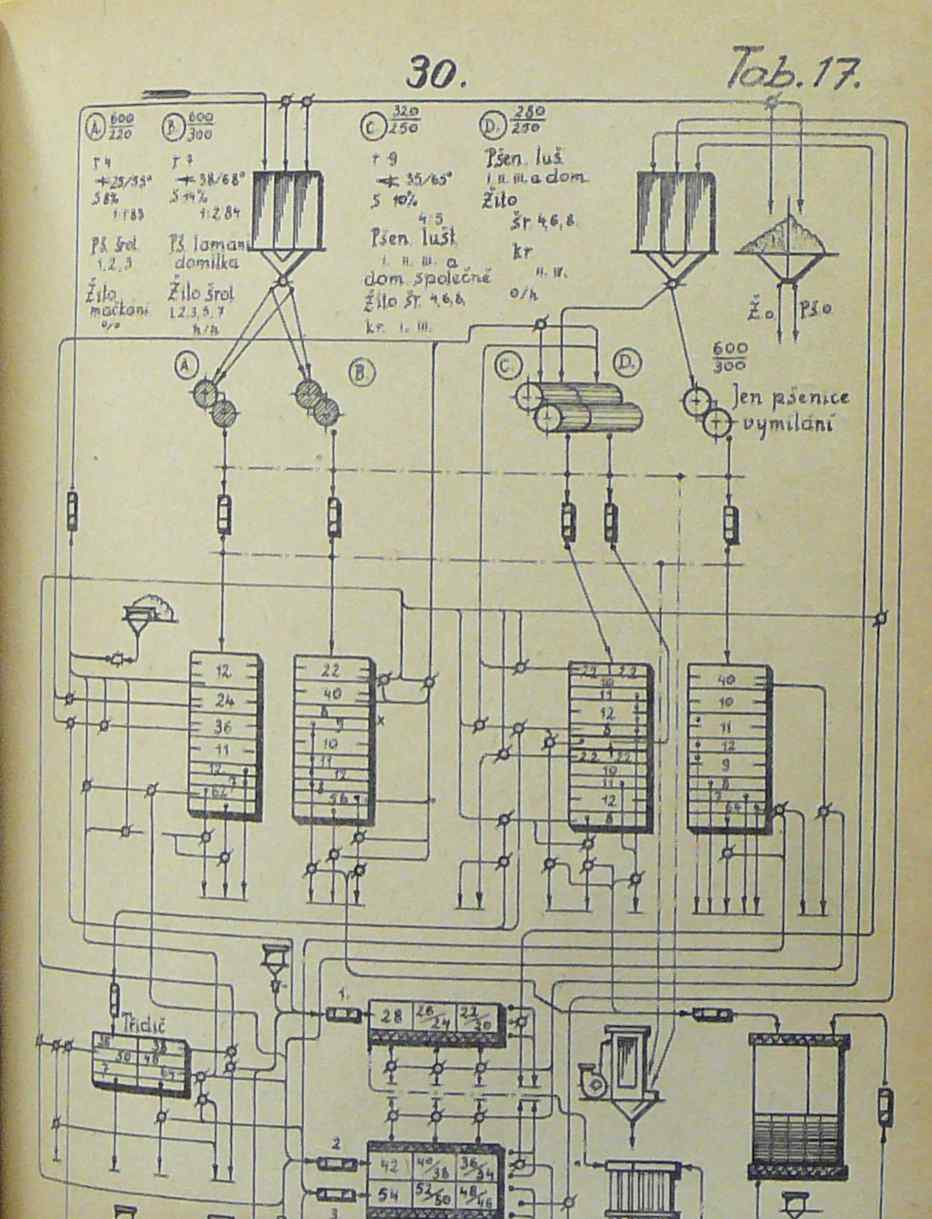 30.
Tab. 17.
A. 600/220
r 4
S 8%
Pš. šrot
1, 2, 3
Žito
mačkání
o/o
B. 600/300
r 7
38/68°
S 14%
1:2,84
Pš. lámání
domílka
Žito šrot
1,2,3,5,7
h/h
C. 320/250
r 9
35/65°
S 10%
4:5
Pšen. lušt.
I. II. III. a
dom. společně
Žito šr. 4,6,8,
kr. I. III.
D. 280/250
Pšen. luš.
I. II. III. a dom.
Žito
šr 4,6,8.
kr
II. IV.
o/h
Ž.o.
Pš.o.
A.
B.
C.
D.
600/300
Jen pšenice
vymílání
12
24
36
11
12
7
62
22
40
8
9
10
11
12
56
x
22 22
10
11
12
8
22 22
10
11
12
8
40
10
11
12
9
8
7
64
1.
28 26/24 22/20
Třídič
36 38
50 48
7 64
2
42 40/38 36/34
54 52/50 48/46
3